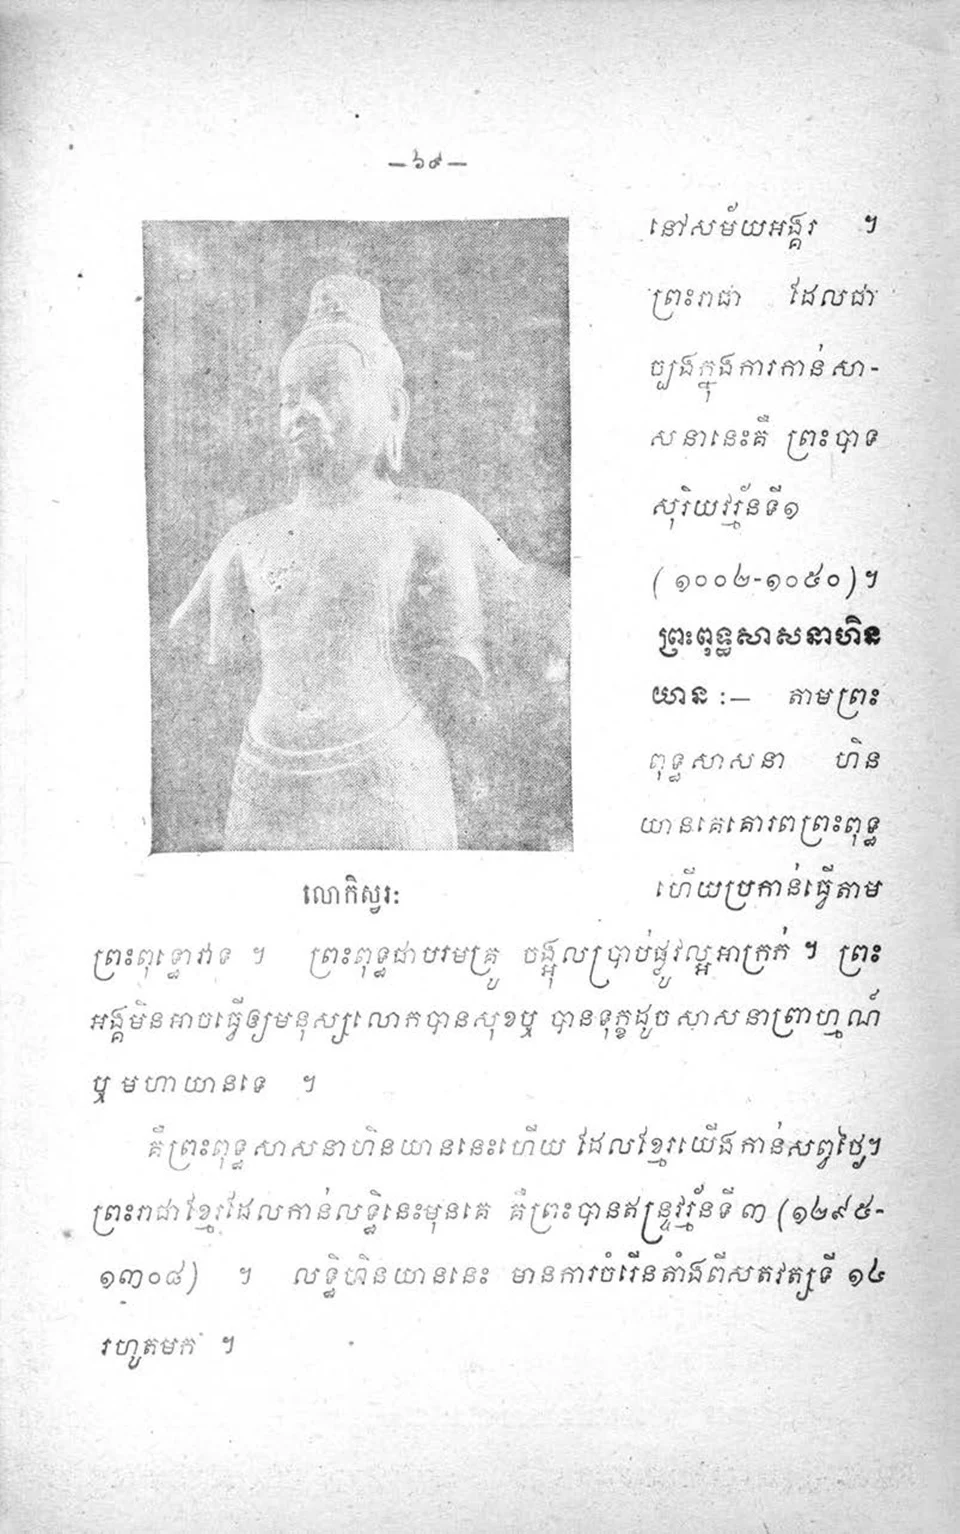 —៦៩—
នៅសម័យអង្គរ ។
ព្រះរាជា ដែលជា
ច្បងក្នុងការកាន់សា-
សនានេះគឺ ព្រះបាទ
សុរិយវរ្ម័នទី១
(១០០២-១០៥០)។
ព្រះពុទ្ធសាសនាហិន
យាន :— តាមព្រះ
ពុទ្ធសាសនា ហិន
យានគេគោរពព្រះពុទ្ធ
ហើយប្រកាន់ធ្វើតាម
លោកិស្វរៈ
ព្រះពុទ្ធោវាទ ។ ព្រះពុទ្ធជាបរមគ្រូ ចង្អុលប្រាប់ផ្លូវល្អអាក្រក់ ។ ព្រះ
អង្គមិនអាចធ្វើឲ្យមនុស្សលោកបានសុខឬ បានទុក្ខដូចសាសនាព្រាហ្មណ៍
ឬ មហាយានទេ ។
គឺព្រះពុទ្ធសាសនាហិនយាននេះហើយ ដែលខ្មែរយើងកាន់សព្វថ្ងៃ។
ព្រះរាជាខ្មែរដែលកាន់លទ្ធិនេះមុនគេ គឺព្រះបានឥន្ទ្រវរ្ម័នទី ៣ (១២៩៥-
១៣០៨) ។ លទ្ធិហិនយាននេះ មានការចំរើនតាំងពីសតវត្សទី ១៤
រហូតមក ។